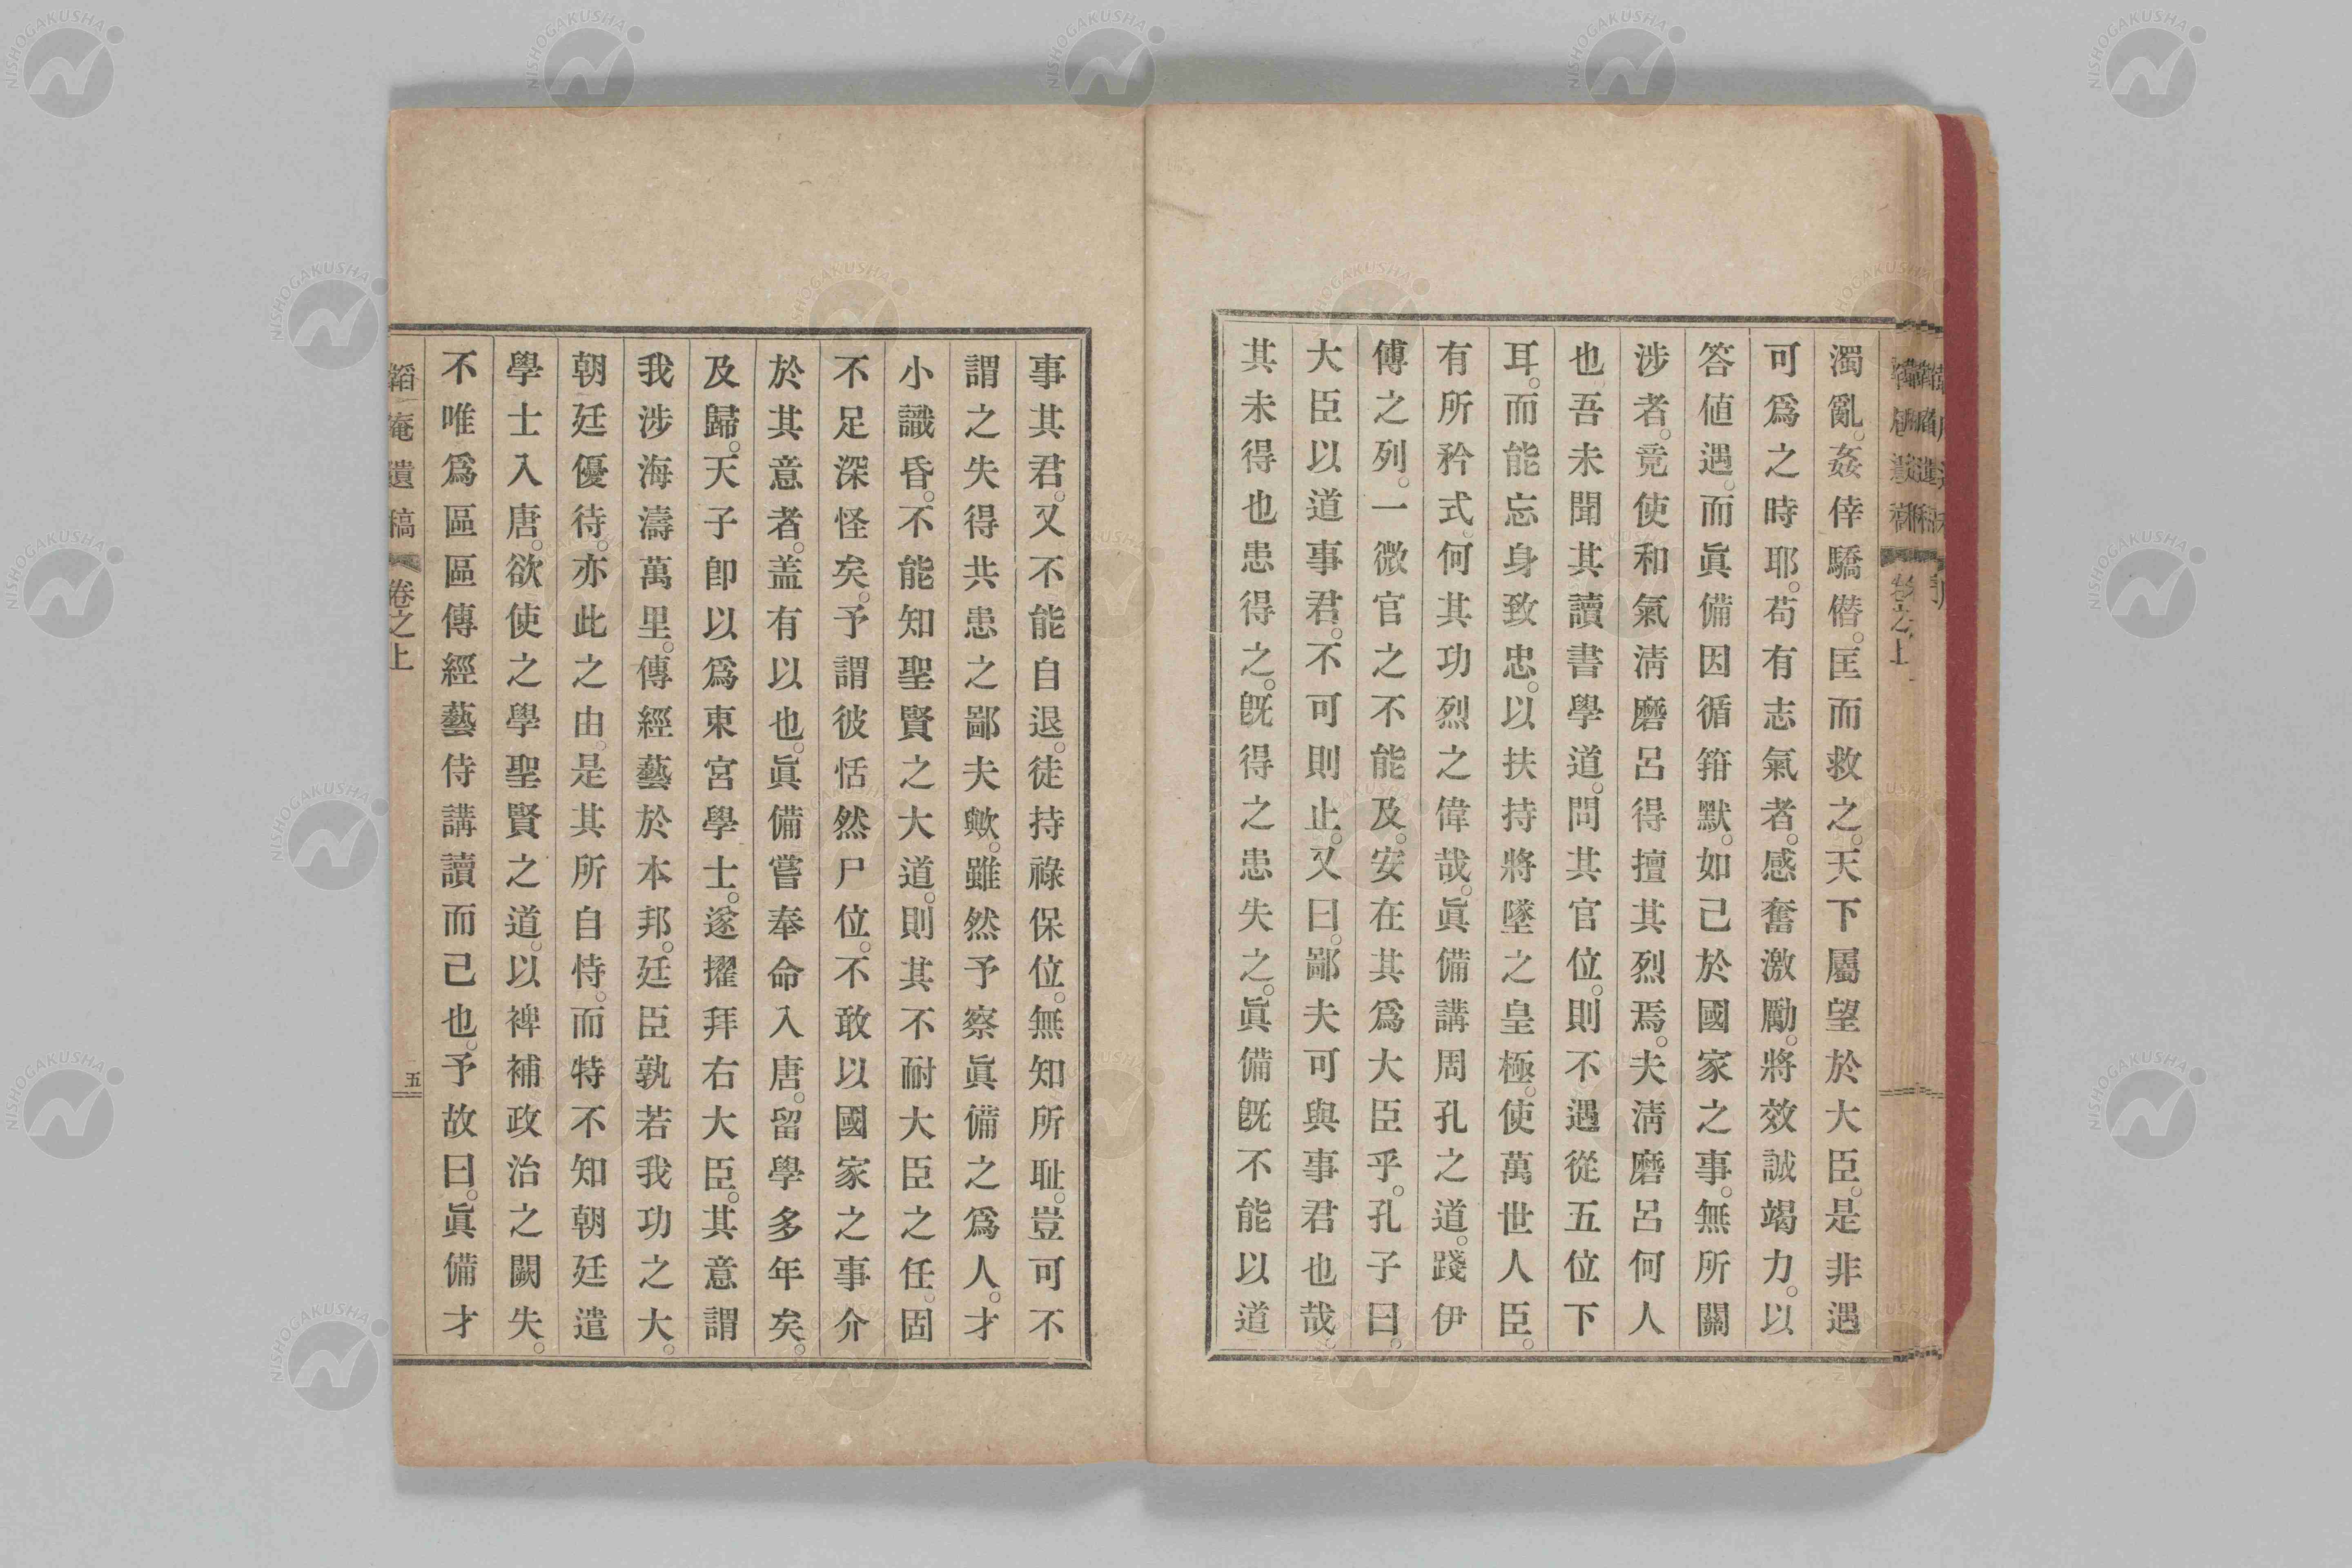 濁亂。姦倖驕僭。匡而救之。天下屬望於大臣。是非遇
可爲之時耶。苟有志氣者。感奮激勵。將效誠竭力。以
答値遇。而眞備因循箝默。如己於國家之事。無所關
涉者。竟使和氣淸磨呂得擅其烈焉。夫淸磨呂何人
也。吾未聞其讀書學道。問其官位。則不過從五位下
耳。而能忘身致忠。以扶持將墜之皇極。使萬世人臣。
有所矜式。何其功烈之偉哉。眞備講周孔之道。踐伊
傅之列。一微官之不能及。安在其爲大臣乎。孔子曰。
大臣以道事君。不可則止。又曰。鄙夫可與事君也哉。
其未得也患得之。既得之患失之。眞備既不能以道
事其君。又不能自退。徒持祿保位。無知所耻。豈可不
謂之失得共患之鄙夫歟。雖然予察眞備之爲人。才
小識昏。不能知聖賢之大道。則其不耐大臣之任。固
不足深怪矣。予謂彼恬然尸位。不敢以國家之事介
於其意者。盖有以也。眞備嘗奉命入唐。留學多年矣。
及歸。天子卽以爲東宮學士。遂擢拜右大臣。其意謂
我涉海濤萬里。傳經藝於本邦。廷臣孰若我功之大。
朝廷優待。亦此之由。是其所自恃。而特不知朝廷遣
學士入唐。欲使之學聖賢之道。以裨補政治之闕失。
不唯爲區區傳經藝侍講讀而己也。予故曰。眞備才
韜菴遺稿 卷之上 五
NISHOGAKUSHA